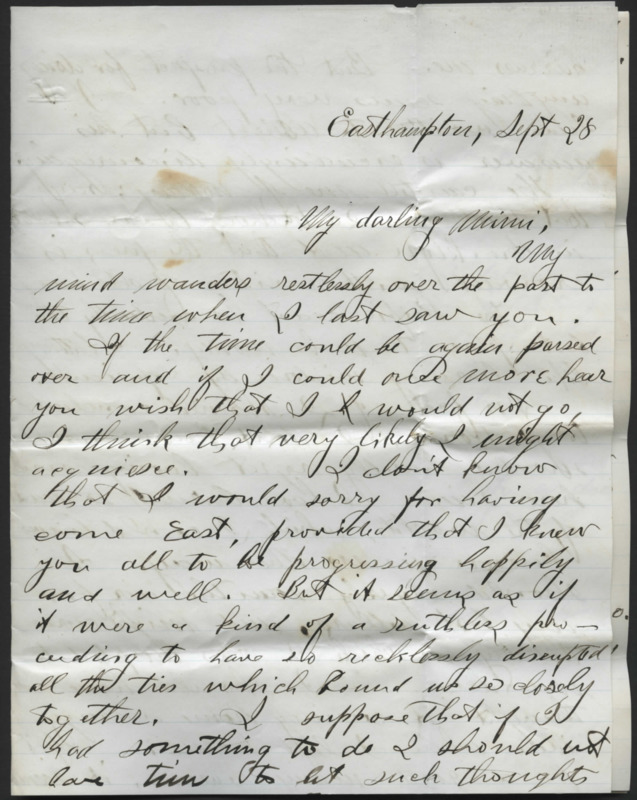 Easthampton, Sept 28
My darling Mimi,
My
mind wanders restlessly over the past to
the time when I last saw you.
If the time could be again passed
over and if I could once more hear
you wish that I would not go,
I think that very likely I might
acquiesce. I don't know
that I would sorry for having
come East, provided that I knew
you all to be progressing happily
and well. But it seems as if
it were a kind of a ruthless pro-
ceeding to have so recklessly disrupted
all the ties which bound us so closely
together. I suppose that if I
had something to do I should not
have time to let such thoughts